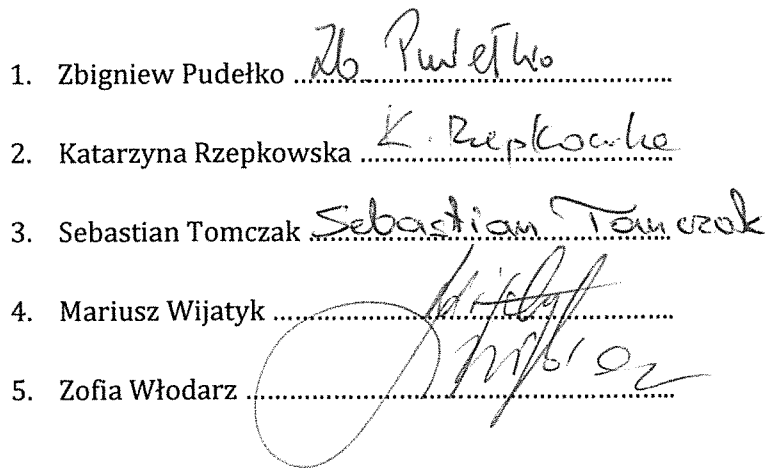 1. Zbigniew Pudełko Zb. Pudełko
2. Katarzyna Rzepkowska K. Rzepkowska
3. Sebastian Tomczak Sebastian Tomczak
4. Mariusz Wijatyk
5. Zofia Włodarz